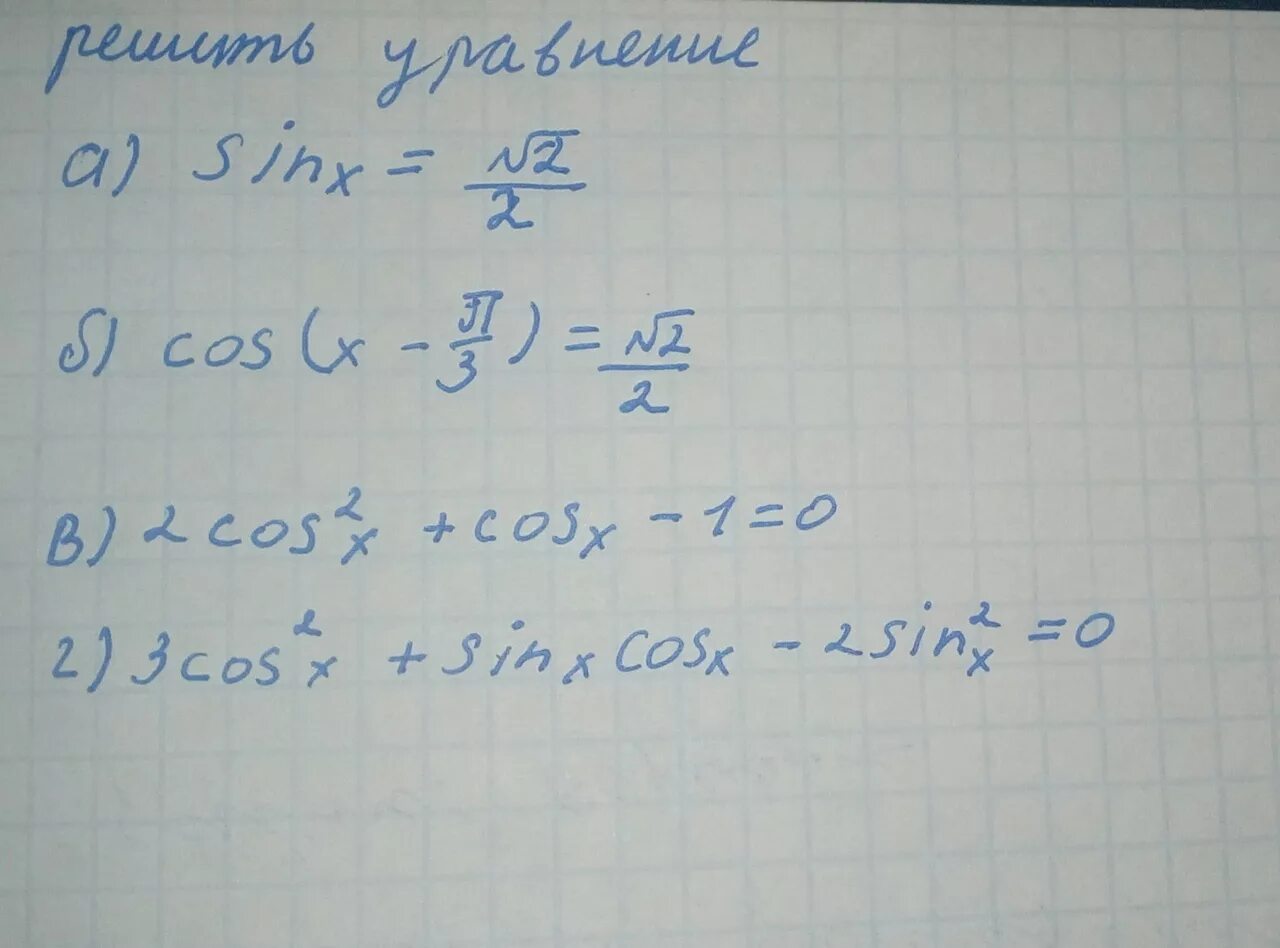 решить уравнение
а) sinx = √2/2
б) cos(x - π/3) = √2/2
в) 2cos²x + cosx - 1 = 0
г) 3cos²x + sinx cosx - 2sin²x = 0